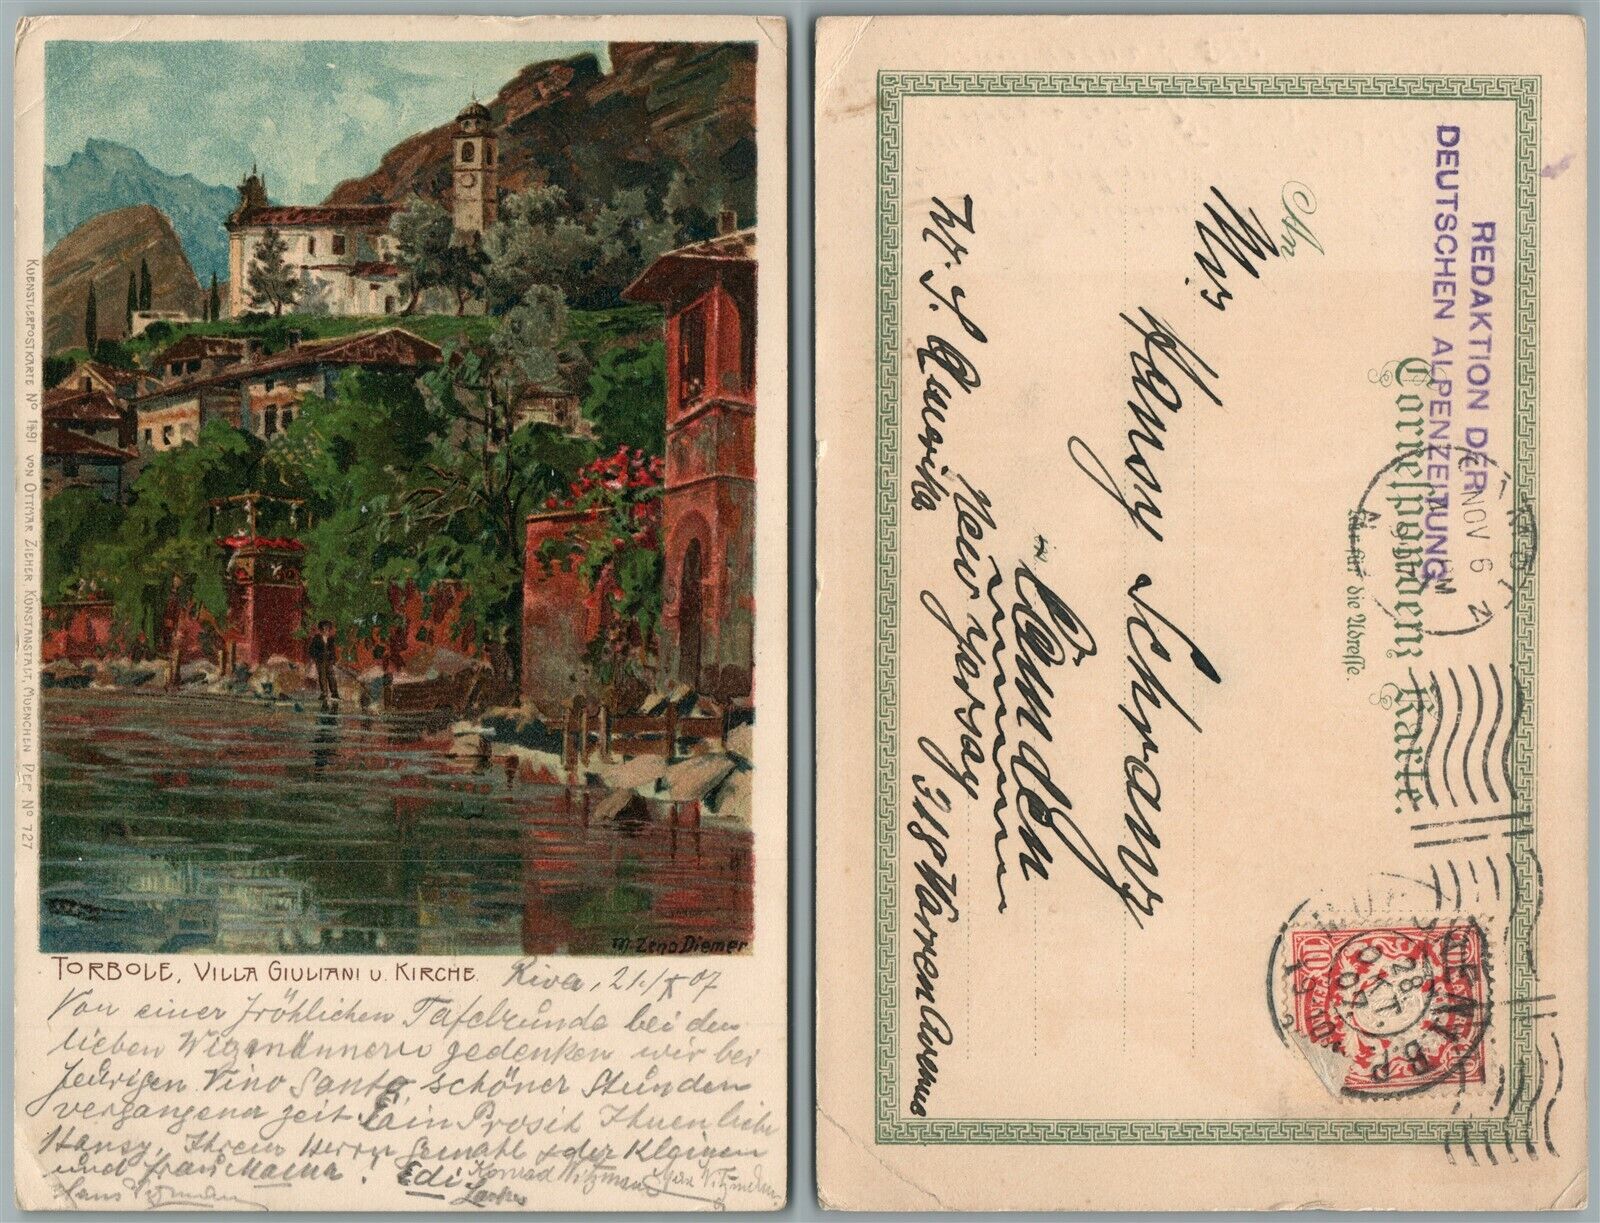 KUENSTLERPOSTKARTE No 1891 VON OTTMAR ZIEHER KUNSTANSTALT, MUENCHEN DEP. No 727
M. Zeno Diemer
TORBOLE, VILLA GIULIANI U. KIRCHE.
Riva, 21./X 07
Von einer fröhlichen Tafelrunde bei den
lieben Witzmännern gedenken wir bei
feurigen Vino Santo, schöner Stunden
vergangener Zeit. Ein Prosit Ihnen liebe
Hansy, Ihrem Herrn Gemahl der Kleinen
und Frau Mama! Edi Konrad Witzmann Witzmann
Hans Witzmann
REDAKTION DER
DEUTSCHEN ALPENZEITUNG
Correspondenz-Karte.
Nur für die Adresse.
NOV 6
An
Mrs Hansy Schranz
in Camden
New Yersay
318 Warren Avenue
N. S. Amerika
MÜNCHEN
28 OKT. 07
B.P.
10